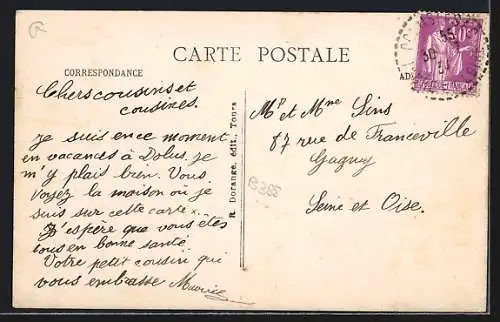 CARTE POSTALE
CORRESPONDANCE
Chers cousins et
cousines.
Je suis en ce moment
en vacances à Dolus, je
m'y plais bien. Vous
voyez la maison où je
suis sur cette carte.
J'espère que vous êtes
tous en bonne santé
Votre petit cousin qui
vous embrasse Maurice
R. Dorange, édit., Tours
Mr et Mme Sins
87 rue de Franceville
Gagny
Seine et Oise.
B388